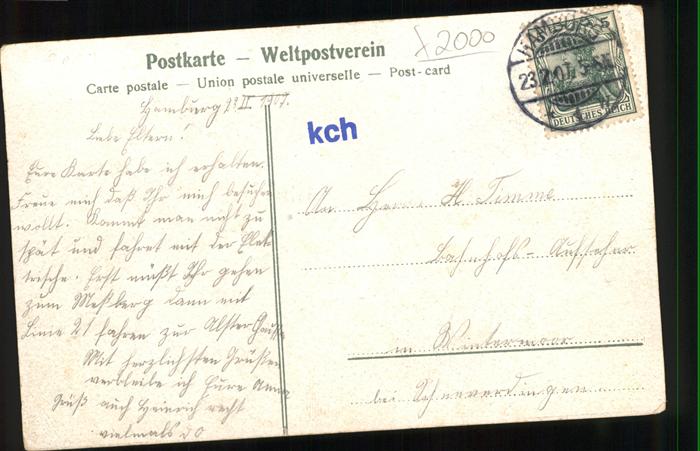 Postkarte — Weltpostverein
Carte postale — Union postale universelle — Post-card
x 2000
HAMBURG
23.2.07
5
DEUTSCHES REICH
kch
Hamburg 23 II. 1907.
Liebe Eltern!
Eure Karte habe ich erhalten.
Freue mich daß Ihr mich besuchen
wollt. Kommt man nicht zu
spät und fahret mit der Elek
trische. Erst müßt Ihr gehen
zum Meßberg dann mit
Linie 21 fahren zur Alster
Mit herzlichsten Grüßen
verbleibe ich Eure Anna
Grüß auch Heinrich recht
vielmals
An Herrn H Timme
Bahnhofs-Aufseher
in Wintermoor
bei Schneverdingen